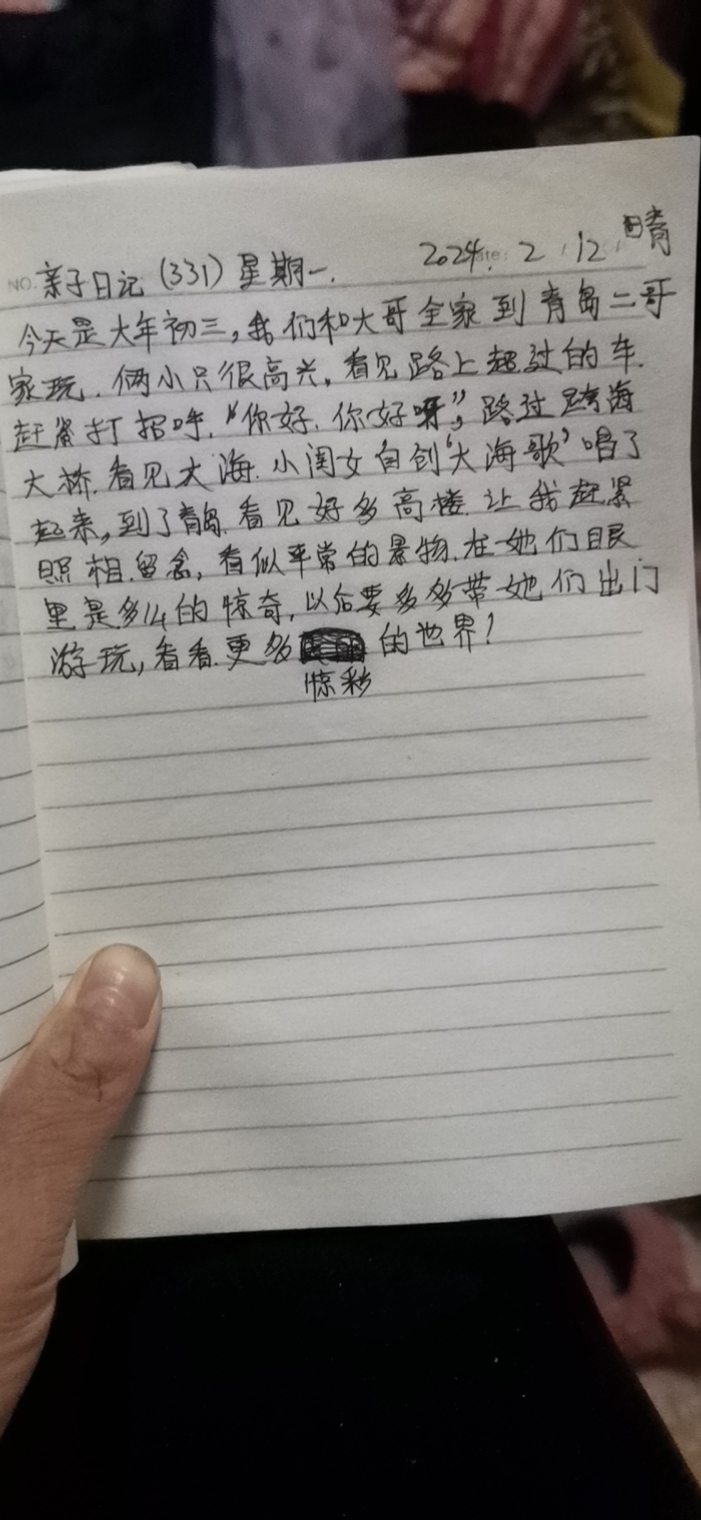 NO. 亲子日记(331) 星期一. 2024. 2 12 晴
今天是大年初三,我们和大哥全家到青岛二哥
家玩.俩小只很高兴.看见路上超过的车.
赶紧打招呼.“你好.你好呀”,路过跨海
大桥.看见大海.小闺女自创‘大海歌’唱了
起来,到了青岛.看见好多高楼.让我赶紧
照相.留念,看似平常的景物.在她们眼
里是多么的惊奇,以后要多多带她们出门
游玩,看看.更多 的世界!
惊彩